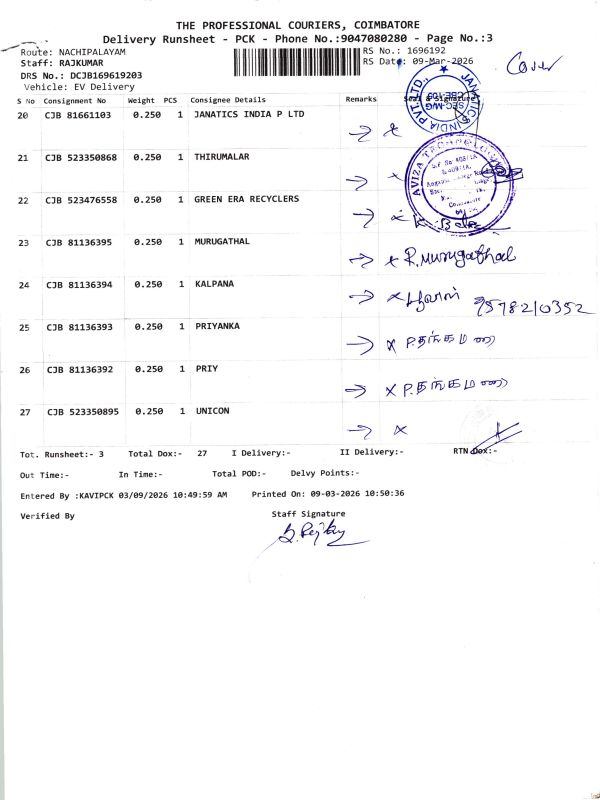 THE PROFESSIONAL COURIERS, COIMBATORE
Delivery Runsheet - PCK - Phone No.:9047080280 - Page No.:3
Route: NACHIPALAYAM RS No.: 1696192
Staff: RAJKUMAR RS Date: 09-Mar-2026 Cover
DRS No.: DCJB169619203
Vehicle: EV Delivery
S No Consignment No Weight PCS Consignee Details Remarks Seal & Signature
20 CJB 81661103 0.250 1 JANATICS INDIA P LTD
JANATICS INDIA PVT. LTD.,
21 CJB 523350868 0.250 1 THIRUMALAR
AVIZA Technology
22 CJB 523476558 0.250 1 GREEN ERA RECYCLERS
23 CJB 81136395 0.250 1 MURUGATHAL
x R.Murugathal
24 CJB 81136394 0.250 1 KALPANA
x 9578210352
25 CJB 81136393 0.250 1 PRIYANKA
x P.தங்கமணி
26 CJB 81136392 0.250 1 PRIY
x P.தங்கமணி
27 CJB 523350895 0.250 1 UNICON
x
Tot. Runsheet:- 3 Total Dox:- 27 I Delivery:- II Delivery:- RTN Dox:-
Out Time:- In Time:- Total POD:- Delvy Points:-
Entered By :KAVIPCK 03/09/2026 10:49:59 AM Printed On: 09-03-2026 10:50:36
Verified By Staff Signature